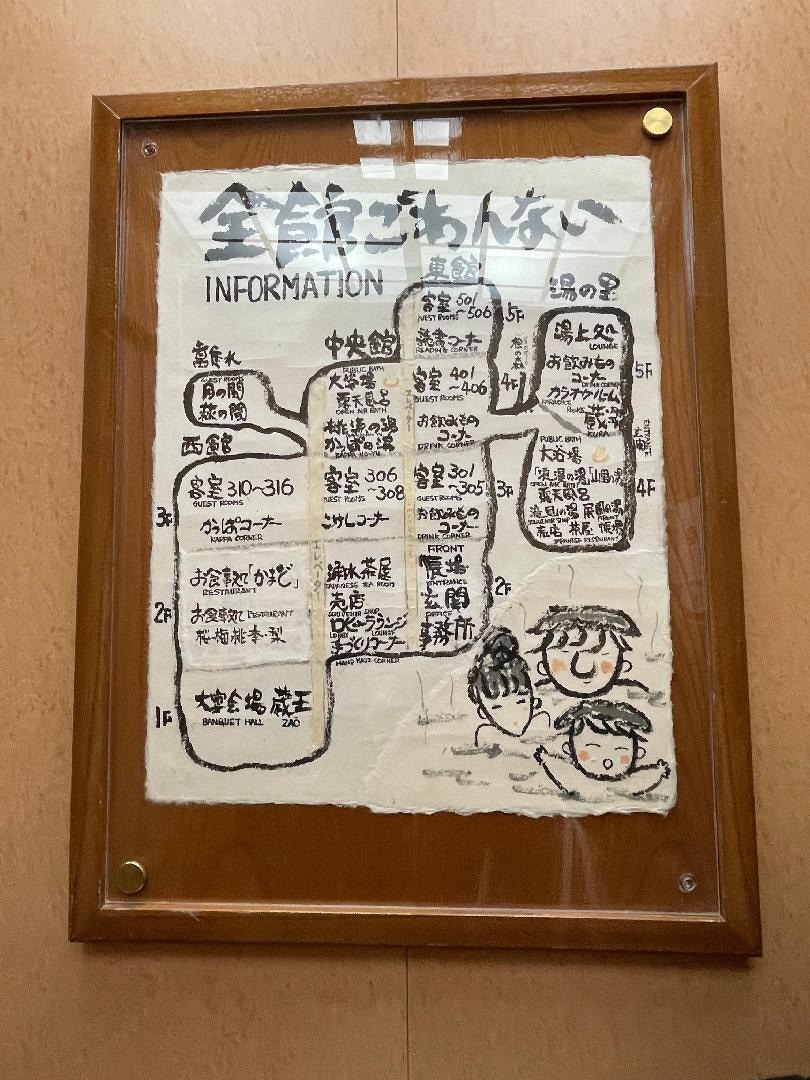 全館ごあんない
INFORMATION
離れ
GUEST ROOMS
月の間
萩の間
西館
3F
客室 310~316
GUEST ROOMS
かっぱコーナー
KAPPA CORNER
2F
お食事処「かまど」
RESTAURANT
お食事処 RESTAURANT
桜・梅・桃・李・梨
1F
大宴会場 蔵王
BANQUET HALL ZAO
中央館
PUBLIC BATH
大浴場
露天風呂
OPEN AIR BATH
桃源の湯
かっぱの湯
KAPPA NO-YU
客室 306~308
GUEST ROOMS
こけしコーナー
湧水茶屋
JAPANESE TEA ROOM
売店
SOUVENIR SHOP
ロビーラウンジ
LOBBY LOUNGE
手づくりコーナー
HAND MADE CORNER
エレベーター
東館
5F
客室 501~506
GUEST ROOMS
読書コーナー
READING CORNER
4F
客室 401~406
GUEST ROOMS
お飲みもの
コーナー
DRINK CORNER
3F
客室 301~305
GUEST ROOMS
お飲みもの
コーナー
DRINK CORNER
2F
FRONT
帳場
ENTRANCE
玄関
OFFICE
事務所
湯の里
5F
湯上処
LOUNGE
お飲みもの
コーナー
DRINK CORNER
カラオケルーム
KARAOKE ROOM
蔵
KURA
4F
PUBLIC BATH
大浴場
OPEN AIR BATH
露天風呂
SOUVENIR SHOP
売店 茶屋 帳場
JAPANESE RESTAURANT